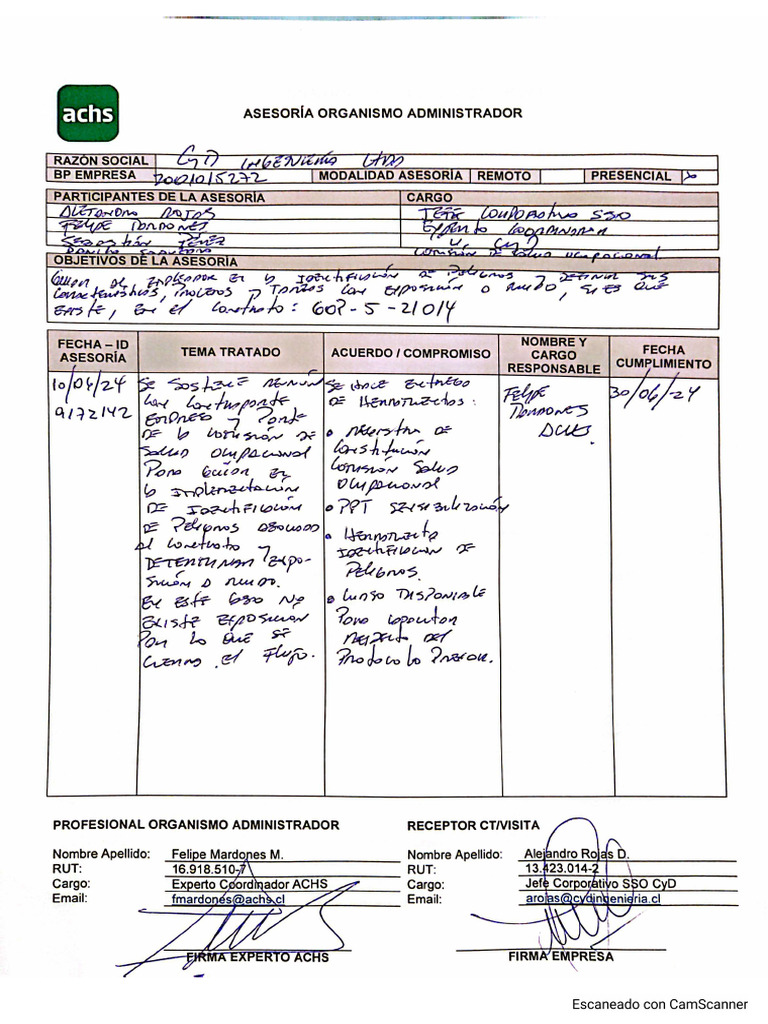 achs
ASESORÍA ORGANISMO ADMINISTRADOR
RAZÓN SOCIAL CyD INGENIERÍA LTDA
BP EMPRESA MODALIDAD ASESORÍA REMOTO PRESENCIAL X
PARTICIPANTES DE LA ASESORÍA CARGO
ALEJANDRO ROJAS JEFE CORPORATIVO SSO
FELIPE MARDONES EXPERTO COORDINADOR
SEBASTIÁN PÉREZ CyD
COMISIÓN DE SALUD OCUPACIONAL
OBJETIVOS DE LA ASESORÍA
EN LA IDENTIFICACIÓN DE PELIGROS Y DEFINIR SUS
CARACTERÍSTICAS, PROCESOS Y TAREAS CON EXPOSICIÓN A RUIDO, SI ES QUE
EXISTE, EN EL CONTRATO: GOP-5-21014
FECHA – ID ASESORÍA
TEMA TRATADO
ACUERDO / COMPROMISO
NOMBRE Y CARGO RESPONSABLE
FECHA CUMPLIMIENTO
10/04/24
9172142
SE SOSTIENE REUNIÓN
CON CONTRAPARTE
EMPRESA Y PARTE
DE LA COMISIÓN DE
SALUD OCUPACIONAL
PARA GUIAR EN
LA IMPLEMENTACIÓN
DE IDENTIFICACIÓN
DE PELIGROS ASOCIADO
AL CONTRATO Y
DETERMINAR EXPO-
SICIÓN A RUIDO.
EN ESTE CASO NO
EXISTE EXPOSICION
POR LO QUE SE
CIERRA EL FLUJO.
SE HACE ENTREGA
DE HERRAMIENTAS:
• DE
CONSTITUCIÓN
COMISIÓN SALUD
OCUPACIONAL
• PPT SENSIBILIZACIÓN
• HERRAMIENTA
IDENTIFICACION DE
PELIGROS.
• CURSO DISPONIBLE
PARA CAPACITAR
RESPECTO DEL
PROTOCOLO PREXOR.
FELIPE
MARDONES
ACHS.
30/06/24
PROFESIONAL ORGANISMO ADMINISTRADOR
Nombre Apellido: Felipe Mardones M.
RUT: 16.918.510-7
Cargo: Experto Coordinador ACHS
Email: fmardones@achs.cl
FIRMA EXPERTO ACHS
RECEPTOR CT/VISITA
Nombre Apellido: Alejandro Rojas D.
RUT: 13.423.014-2
Cargo: Jefe Corporativo SSO CyD
Email: arojas@cydingenieria.cl
FIRMA EMPRESA
Escaneado con CamScanner